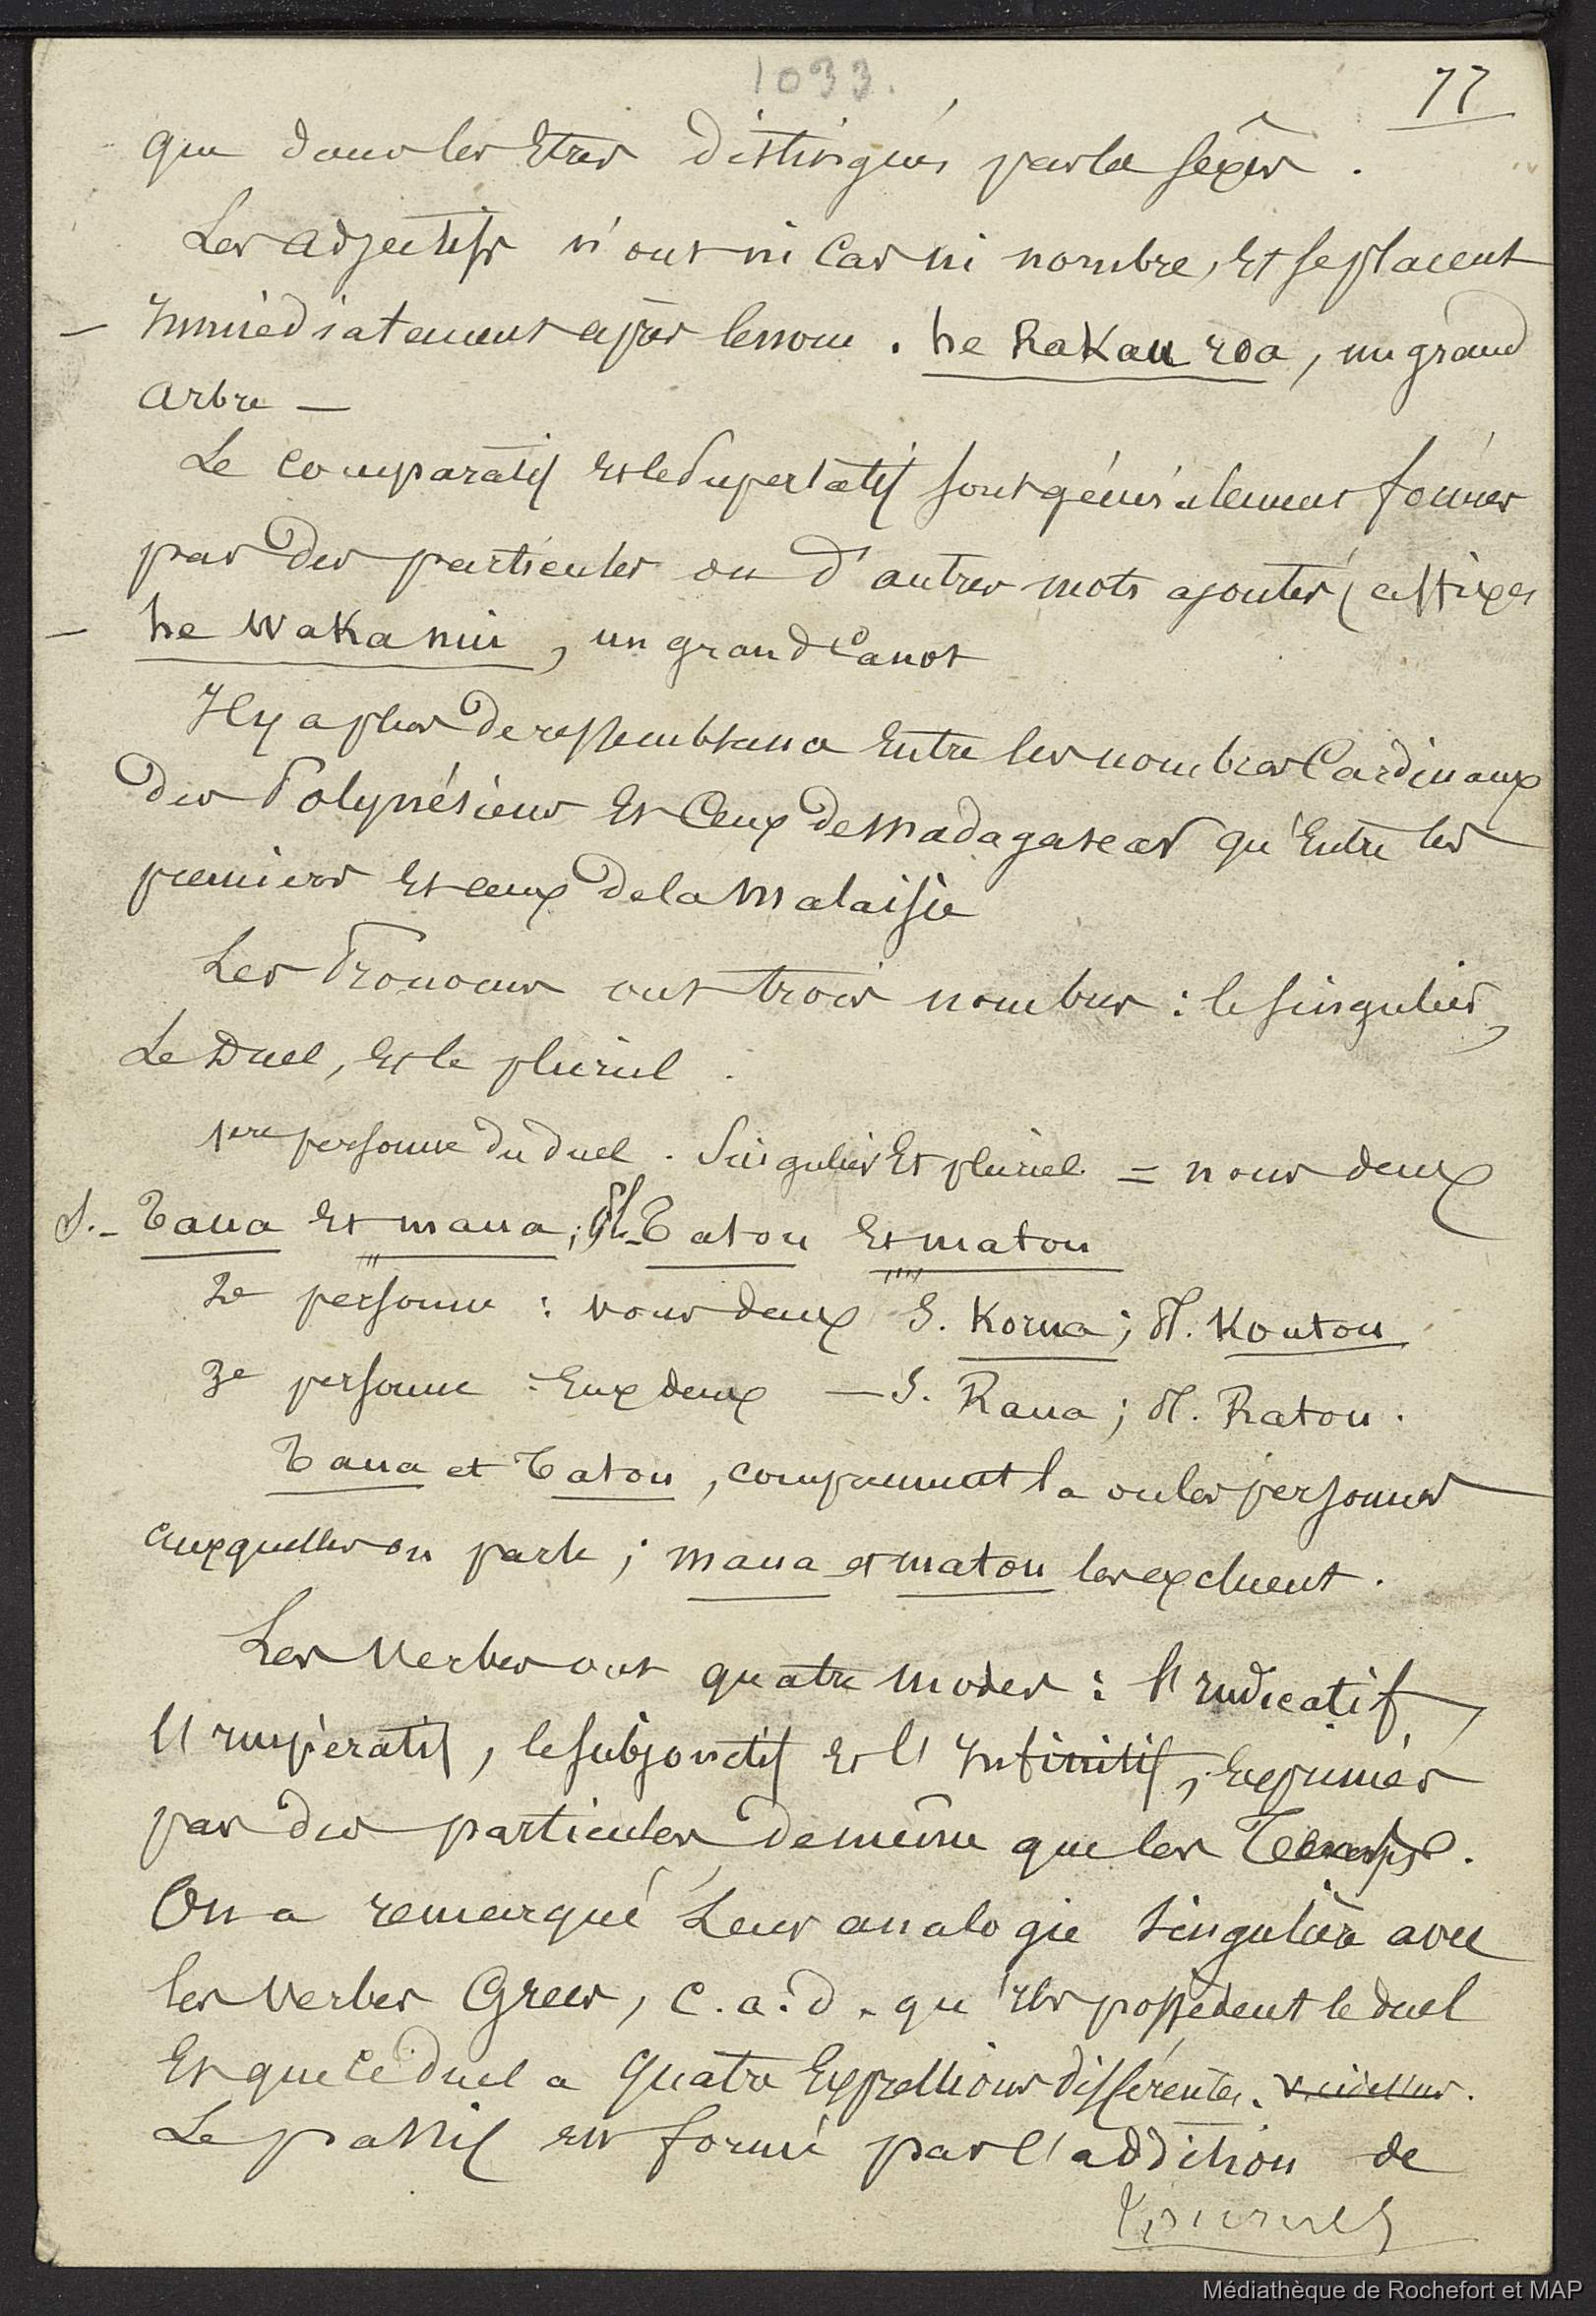 1033.
77
que dans les Etres distingués par le sexe.
Les adjectifs n'ont ni Cas ni nombre, Et se placent
— Immédiatement après le nom. he Rakau roa, un grand
arbre —
Le comparatif et le Superlatif sont généralement formés
par des particules ou d'autres mots ajoutés (affixes
— he Waka nui, un grand Canot
Il y a plus de ressemblance Entre les nombres Cardinaux
des Polynésiens Et Ceux de Madagascar qu'Entre les
premiers Et ceux de la Malaisie
Les Pronoms ont trois nombres : le singulier,
Le Duel, Et le pluriel.
1ere personne du duel. Singulier Et pluriel = nous deux
S. - Taua Et maua; Pl. - Tatou Et matou
2e personne : vous deux S. Korua; Pl. Koutou
3e personne : Eux deux — S. Raua; Pl. Ratou.
Taua et Tatou, comprennent la ou les personnes
auxquelles on parle; maua et matou les excluent.
Les Verbes ont quatre modes : l'Indicatif,
l'Impératif, le subjonctif Et l'Infinitif, Exprimés
par des particules de même que les Temps.
On a remarqué Leur analogie singulière avec
les Verbes Grecs, c.a.d. qu'Ils possèdent le duel
Et que ce duel a quatre Expressions différentes.
Le passif est formé par l'addition de